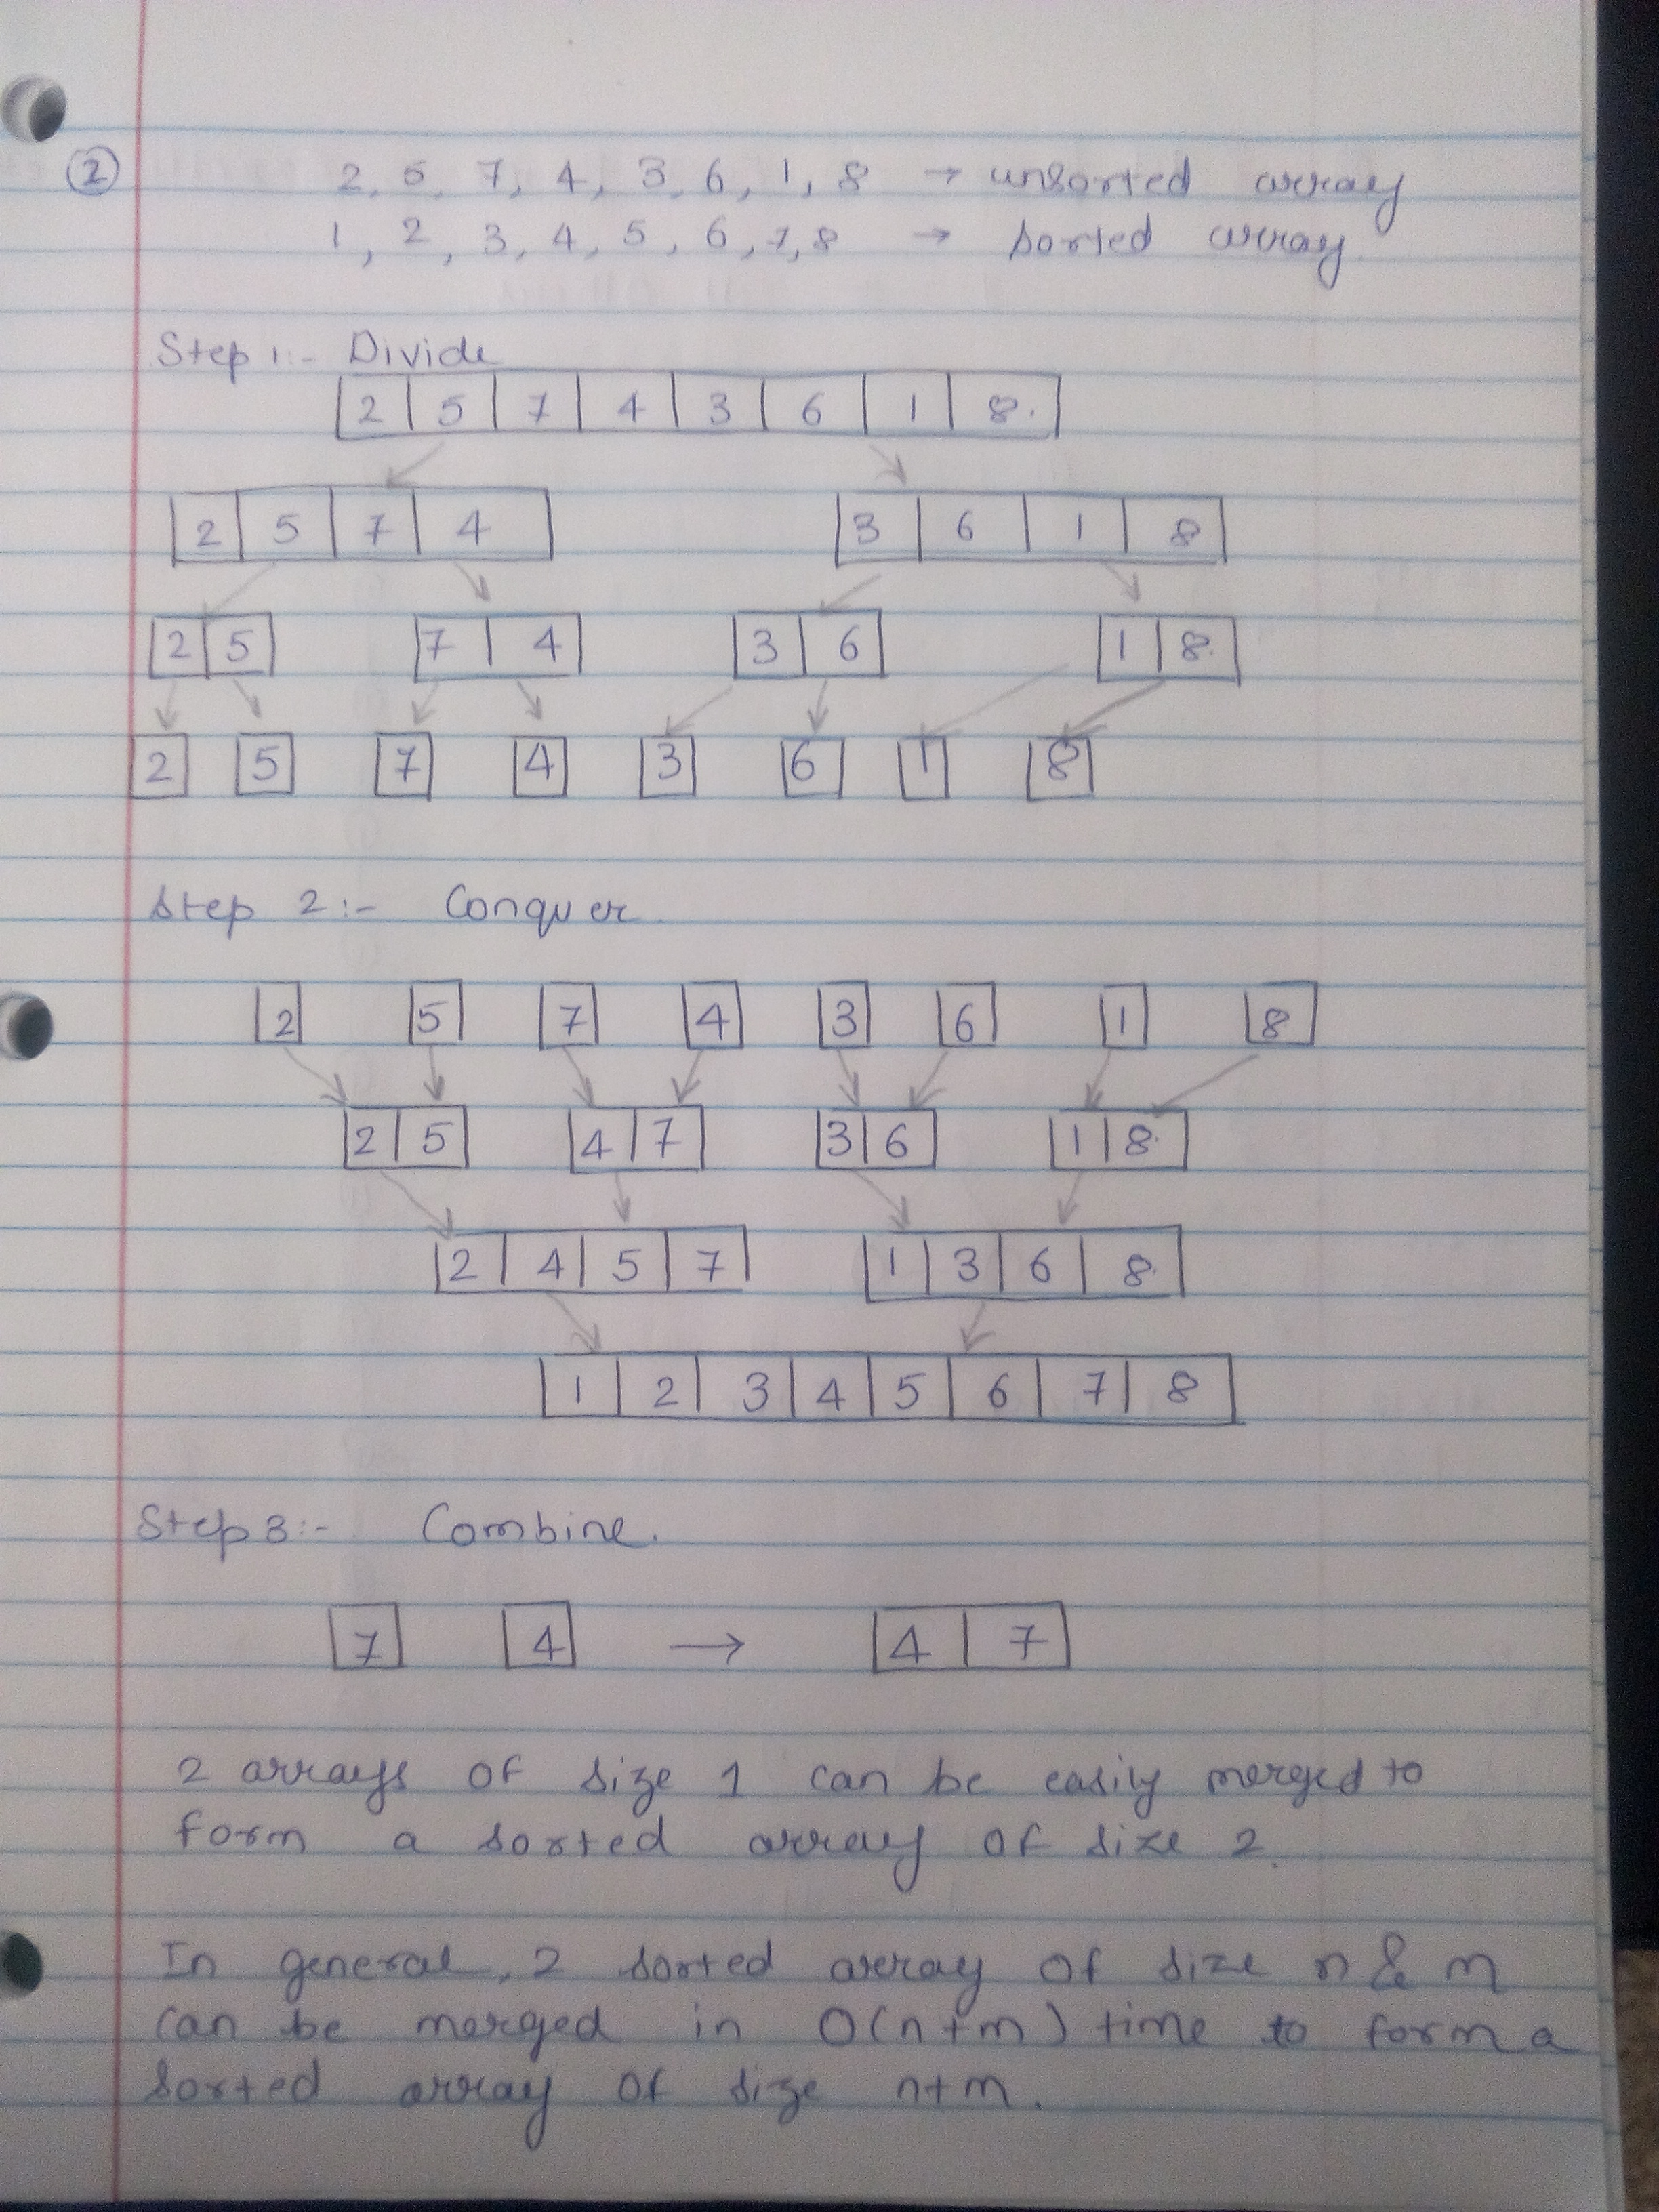 ② 2, 5, 7, 4, 3, 6, 1, 8 → unsorted array
1, 2, 3, 4, 5, 6, 7, 8 → sorted array.
Step 1:- Divide
2 5 7 4 3 6 1 8.
2 5 7 4 3 6 1 8
2 5 7 4 3 6 1 8.
2 5 7 4 3 6 1 8
Step 2:- Conquer.
2 5 7 4 3 6 1 8
2 5 4 7 3 6 1 8.
2 4 5 7 1 3 6 8.
1 2 3 4 5 6 7 8
Step 3:- Combine.
7 4 → 4 7
2 arrays of size 1 can be easily merged to
form a sorted array of size 2.
In general, 2 sorted array of size n & m
can be merged in O(n+m) time to form a
sorted array of size n+m.